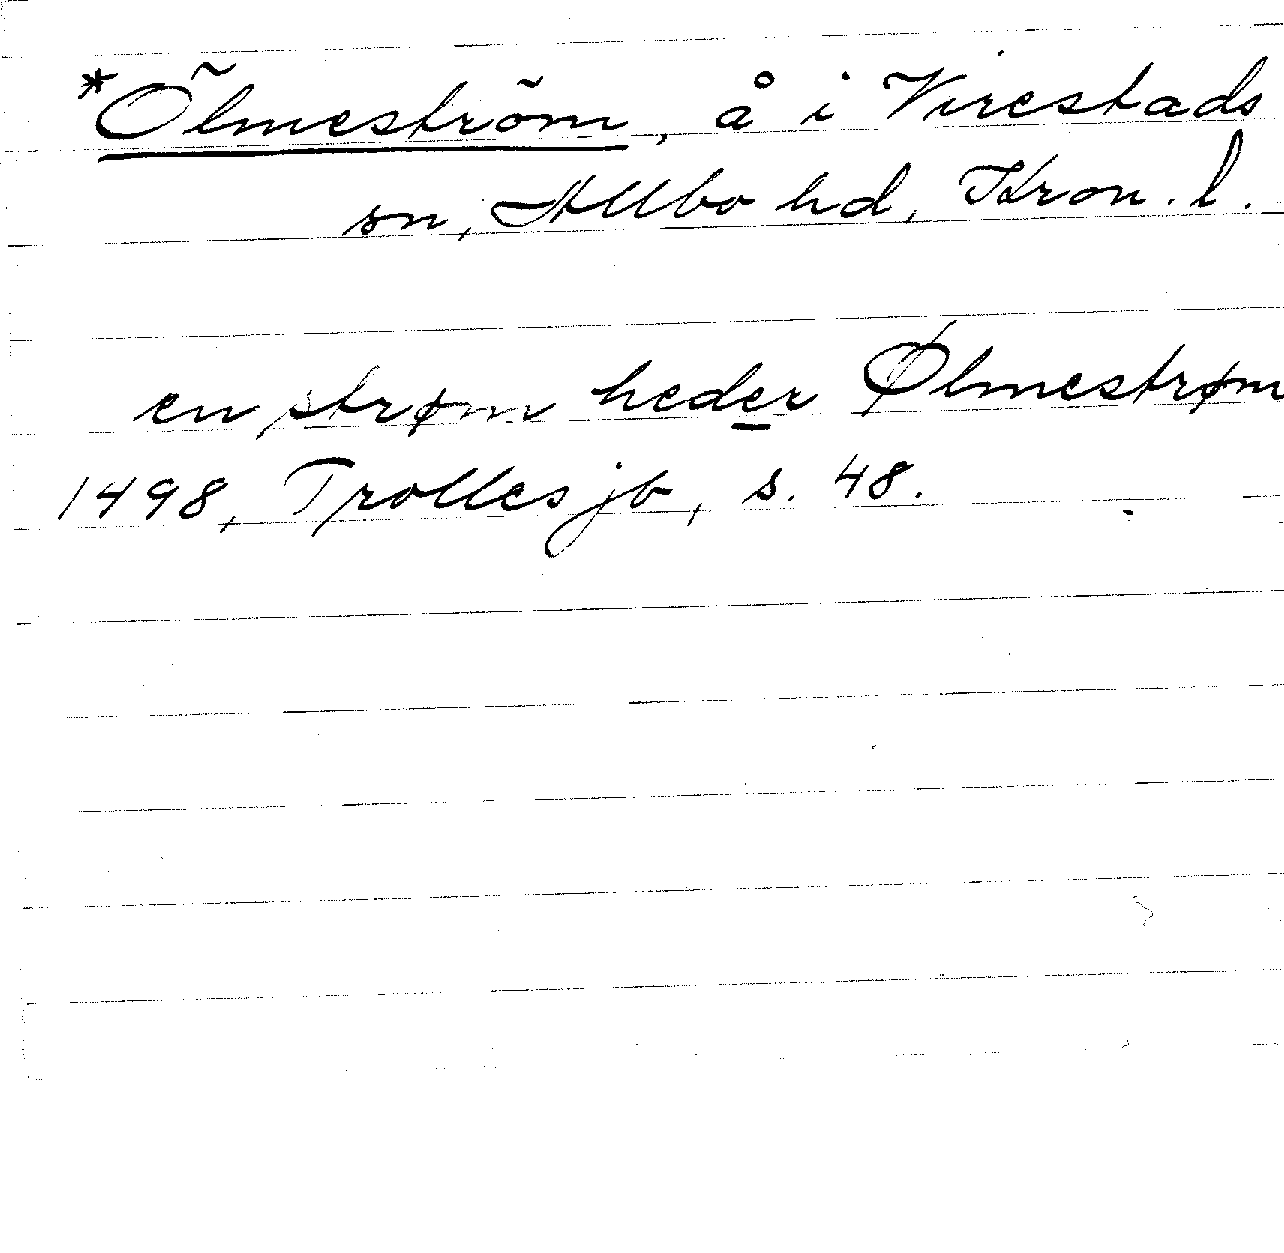 *Ölmeström, å i Virestads
sn, Allbo hd, Kron. l.
en strøm heder Ølmestrøm
1498, Trolles jb, s. 48.